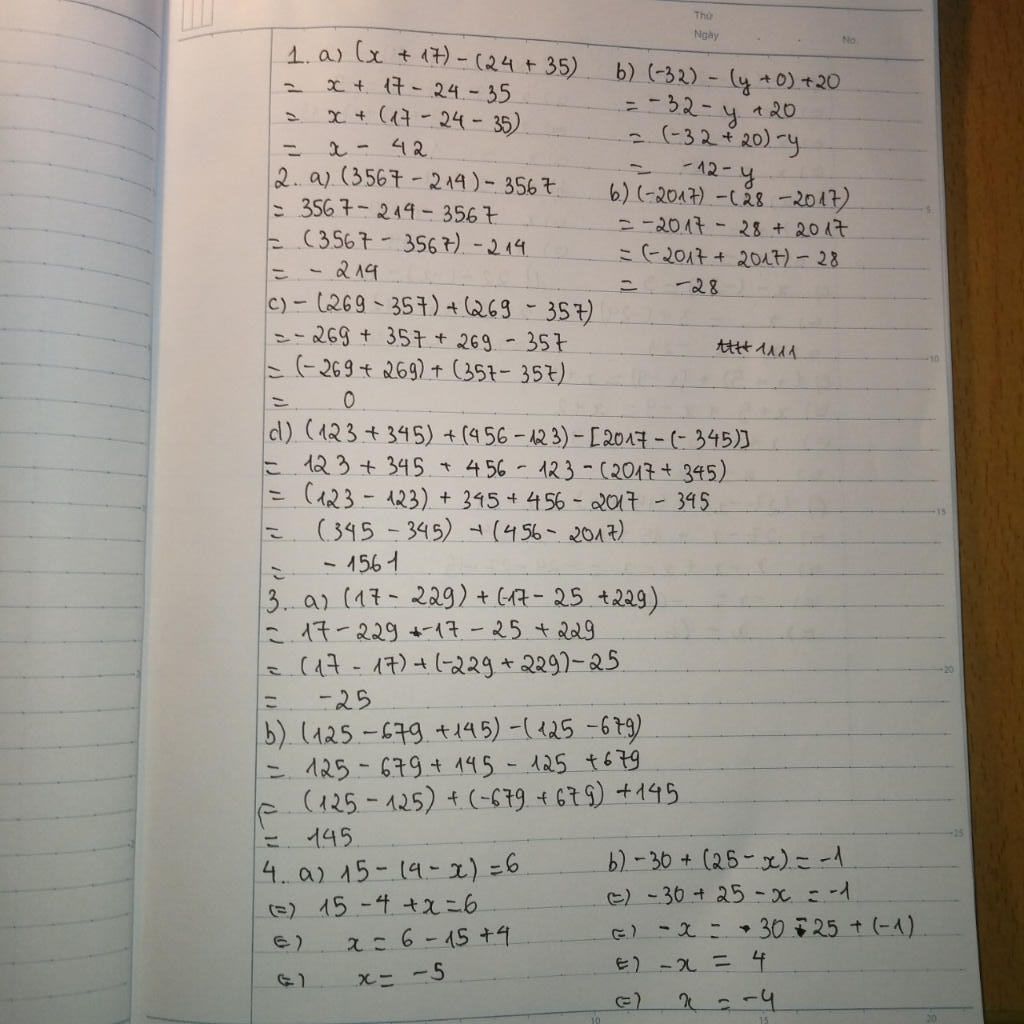 Thứ
Ngày . . No.
1. a) (x + 17) - (24 + 35)
= x + 17 - 24 - 35
= x + (17 - 24 - 35)
= x - 42
b) (-32) - (y + 0) + 20
= -32 - y + 20
= (-32 + 20) - y
= -12 - y
2. a) (3567 - 214) - 3567
= 3567 - 214 - 3567
= (3567 - 3567) - 214
= - 214
b) (-2017) - (28 - 2017)
= -2017 - 28 + 2017
= (-2017 + 2017) - 28
= -28
c) - (269 - 357) + (269 - 357)
= - 269 + 357 + 269 - 357
= (-269 + 269) + (357 - 357)
= 0
1111
d) (123 + 345) + (456 - 123) - [2017 - (- 345)]
= 123 + 345 + 456 - 123 - (2017 + 345)
= (123 - 123) + 345 + 456 - 2017 - 345
= (345 - 345) + (456 - 2017)
= - 1561
3. a) (17 - 229) + (-17 - 25 + 229)
= 17 - 229 - 17 - 25 + 229
= (17 - 17) + (-229 + 229) - 25
= -25
b) (125 - 679 + 145) - (125 - 679)
= 125 - 679 + 145 - 125 + 679
= (125 - 125) + (-679 + 679) + 145
= 145
4. a) 15 - (4 - x) = 6
(=) 15 - 4 + x = 6
(=) x = 6 - 15 + 4
(=) x = -5
b) -30 + (25 - x) = -1
(=) -30 + 25 - x = -1
(=) -x = 30 - 25 + (-1)
(=) -x = 4
(=) x = -4
5
10
15
20
25
10 15 20